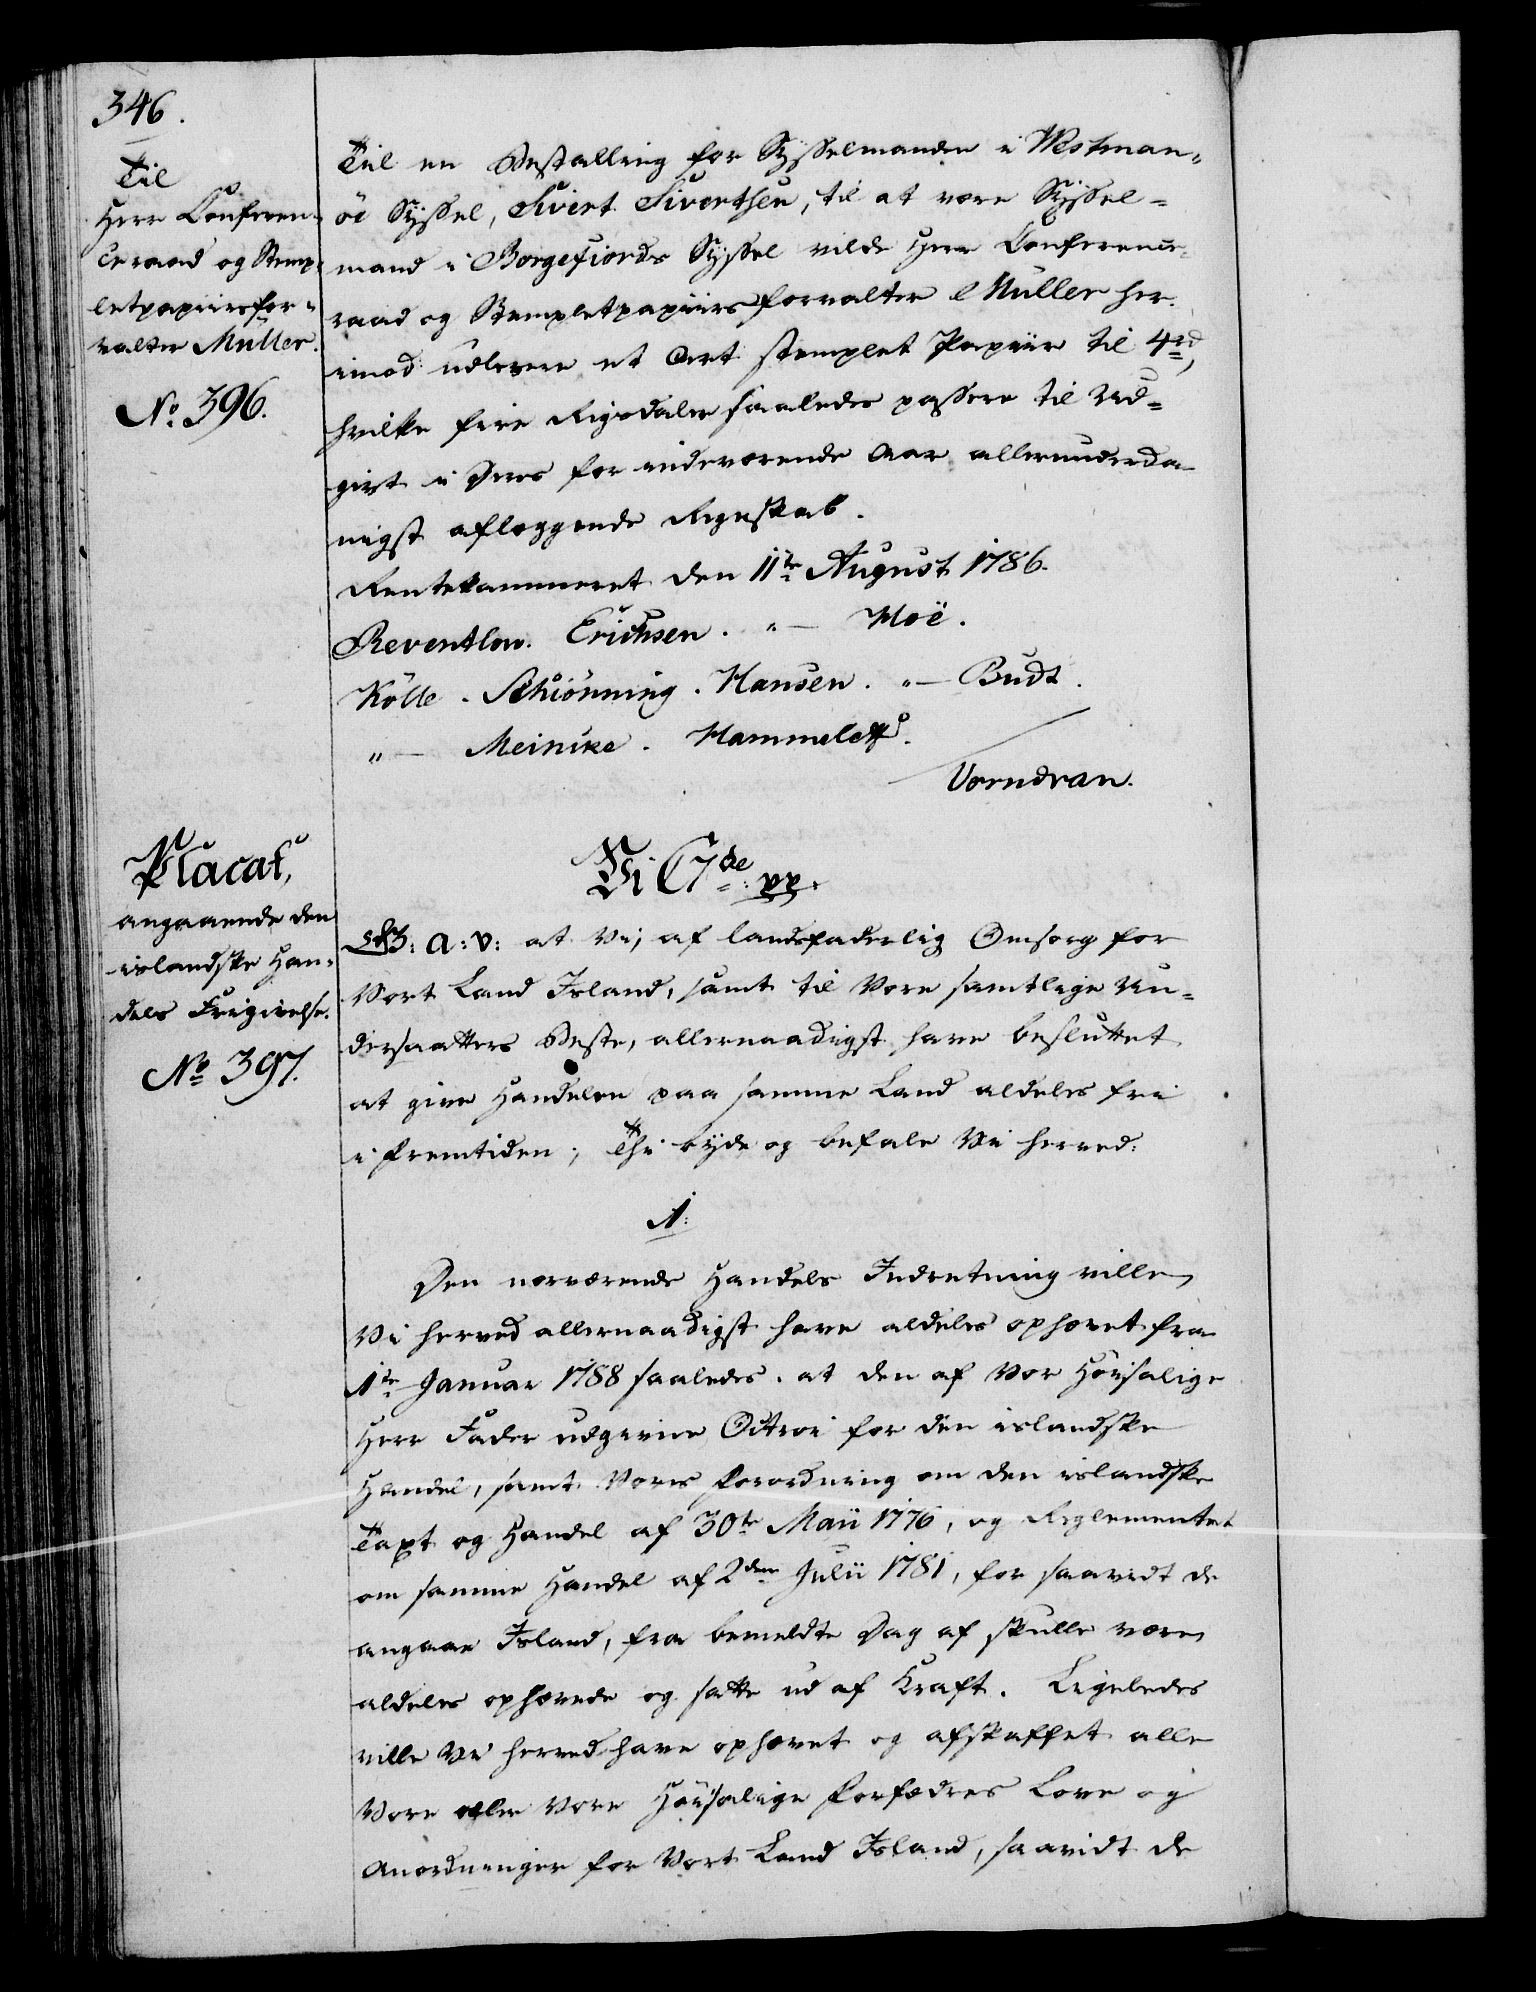 346.
Til
Herr Conferen-
ceraad og Stemp-
letpapiirsfor-
valter Müller.
No. 396.
Til en Bestalling for Sysselmanden i Westman-
öe Syssel, Sivert Sivertsen, til at være Syssel-
mand i Borgefiords Syssel vilde Herr Conference-
raad og Stempletpapiirsforvalter Müller her-
imod udlevere et Ark stemplet Papiir til 4rd,
hvilke fire Rigsdaler saaledes passere til Ud-
givt i Deres for indeværende Aar allerunderda-
nigst aflæggende Regnskab.
Rentekammeret den 11te August 1786.
Reventlow. Erichsen. "— Hoë.
Kölle. Schiönning. Hansen. "— Budtz.
"— Meinike. Hammeleff.
Vorndran.
Placat,
angaaende den
islandske Han-
dels Frigivelse.
No 397.
Vi C 7de pp.
G: A: V: at Vi, af landsfaderlig Omsorg for
Vort Land Island, samt til Vore samtlige Un-
dersaatters Beste, allernaadigst have besluttet
at give Handelen paa samme Land aldeles fri
i Fremtiden; Thi byde og befale Vi herved:
1.
Den nærværende Handels Indretning ville
Vi herved allernaadigst have aldeles ophævet fra
1te Januar 1788 saaledes, at den af Vor Høisalige
Herr Fader udgivne Octroi for den islandske
Handel, samt Vores Forordning om den islandske
Taxt og Handel af 30te Maii 1776, og Reglementet
om samme Handel af 2den Julii 1781, for saavidt de
angaae Island, fra bemeldte Dag af skulle være
aldeles ophævede og satte ud af Kraft. Ligeledes
ville Vi herved have ophævet og afskaffet alle
Vore eller Vore Høisalige Forfædres Love og
Anordninger for Vort Land Island, saavidt de